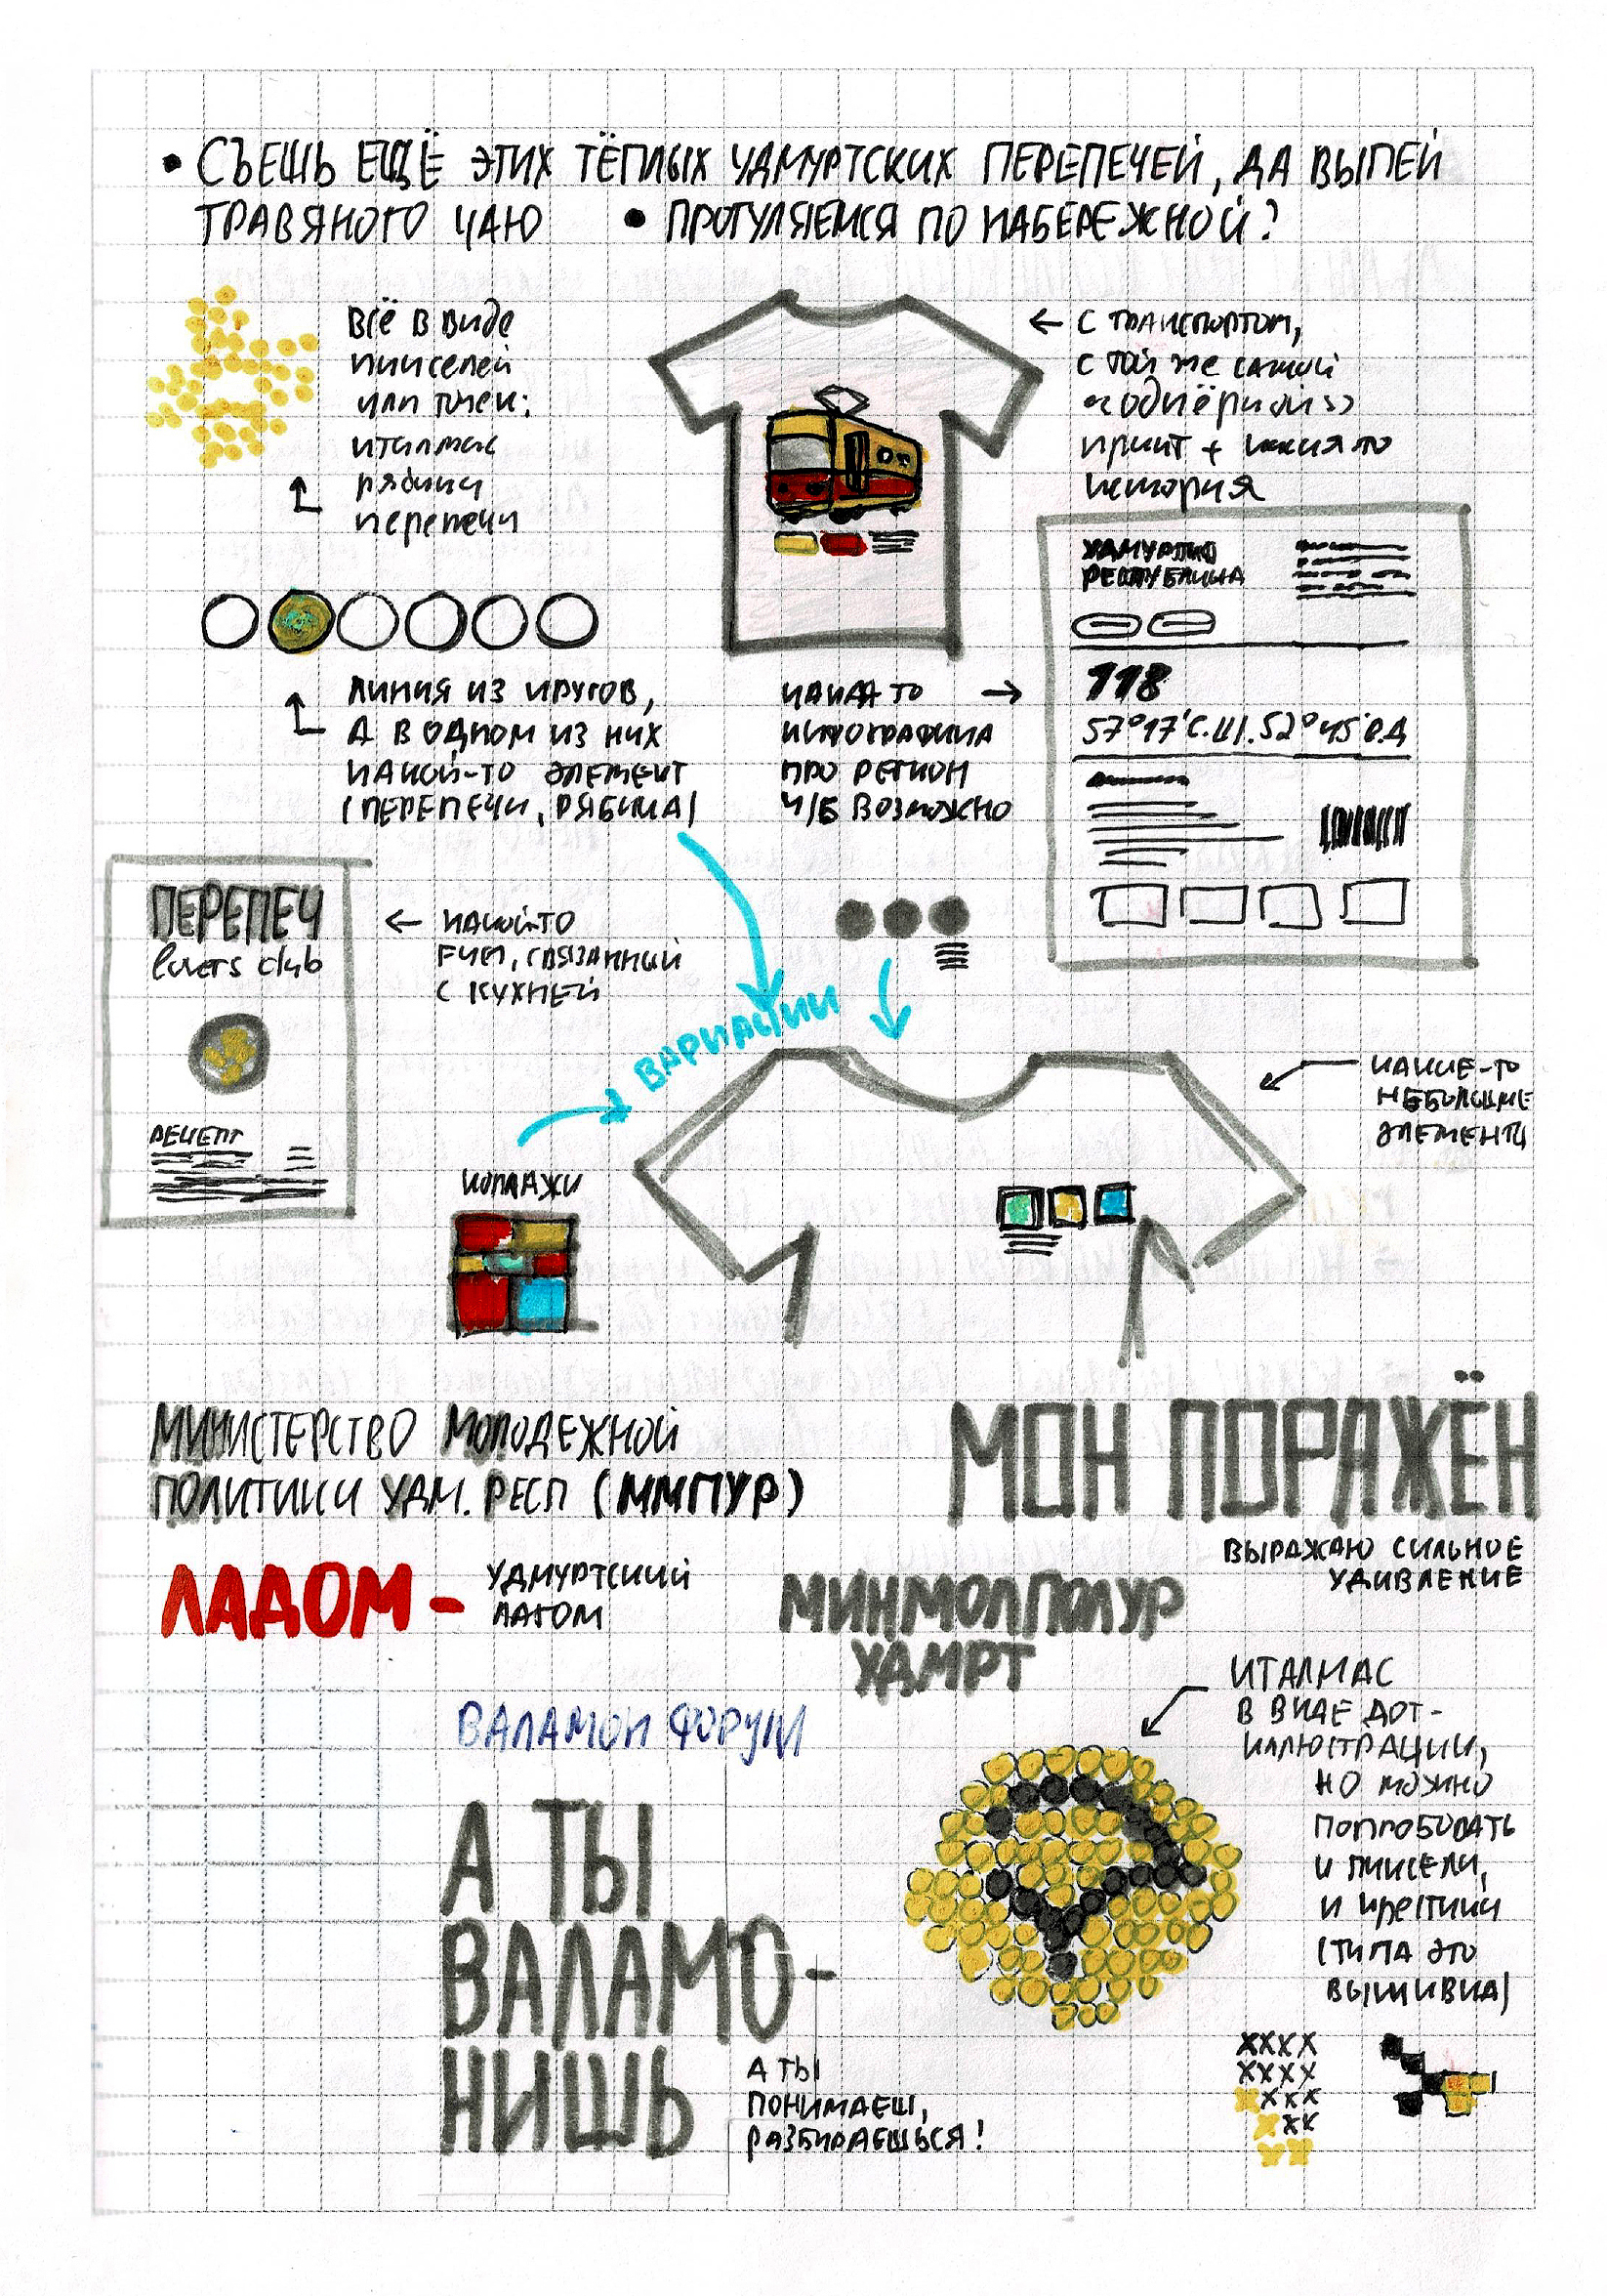 • СЪЕШЬ ЕЩЁ ЭТИХ ТЁПЛЫХ УДМУРТСКИХ ПЕРЕПЕЧЕЙ, ДА ВЫПЕЙ
ТРАВЯНОГО ЧАЮ • ПРОГУЛЯЕМСЯ ПО НАБЕРЕЖНОЙ?
ВСЁ В ВИДЕ
ПИКСЕЛЕЙ
ИЛИ ТОЧЕК:
ИТАЛМАС
РЯБИНЫ
ПЕРЕПЕЧИ
← С ТРАНСПОРТОМ,
С ТОЙ ЖЕ САМОЙ
ПРИНТ + КАКАЯ-ТО
ИСТОРИЯ
УДМУРТСКАЯ
РЕСПУБЛИКА
118
57°17'С.Ш. 52°45'В.Д
ЛИНИЯ ИЗ КРУГОВ,
А В ОДНОМ ИЗ НИХ
КАКОЙ-ТО ЭЛЕМЕНТ
(ПЕРЕПЕЧИ, РЯБИНА)
КАКАЯ ТО →
ИНФОГРАФИКА
ПРО РЕГИОН
Ч/Б ВОЗМОЖНО
ПЕРЕПЕЧ
lovers club
РЕЦЕПТ
← КАКОЙ-ТО
, СВЯЗАННЫЙ
С КУХНЕЙ
ВАРИАЦИИ
КАКИЕ-ТО
НЕБОЛЬШИЕ
ЭЛЕМЕНТЫ
КОЛЛАЖИ
МИНИСТЕРСТВО МОЛОДЕЖНОЙ
ПОЛИТИКИ УДМ. РЕСП (ММПУР)
МОН ПОРАЖЁН
ВЫРАЖАЮ СИЛЬНОЕ
УДИВЛЕНИЕ
ЛАДОМ - УДМУРТСКИЙ
ЛАГОМ
МИНМОЛПОЛУР
УДМРТ
ВАЛАМОН ФОРУМ
ИТАЛМАС
В ВИДЕ ДОТ-
ИЛЛЮСТРАЦИИ,
НО МОЖНО
ПОПРОБОВАТЬ
И ПИКСЕЛИ,
И КРЕСТИКИ
(ТИПА ЭТО
ВЫШИВКА)
А ТЫ
ВАЛАМО-
НИШЬ
А ТЫ
ПОНИМАЕШ,
РАЗБИРАЕШЬСЯ!